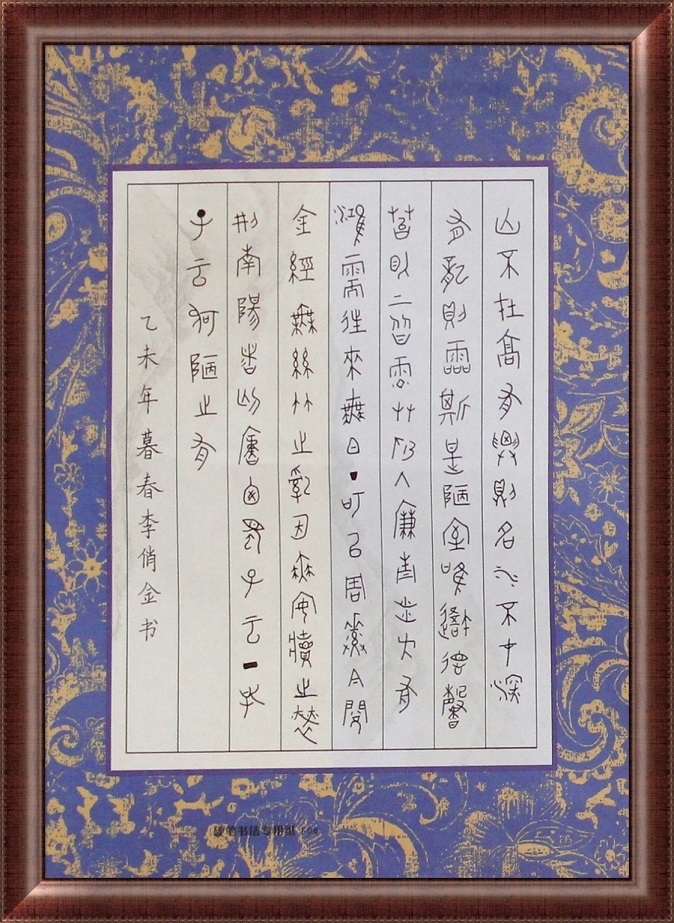 山不在高有僊則名水不在深
有龍則靈斯是陋室唯吾德馨
苔痕上階綠艸色入簾青談笑有
鴻儒往來無白丁可以調素琴閱
金經無絲竹之亂耳無案牘之勞
形南陽諸葛廬西蜀子云亭孔
子云何陋之有
乙未年暮春李俏金书
硬笔书法专用纸